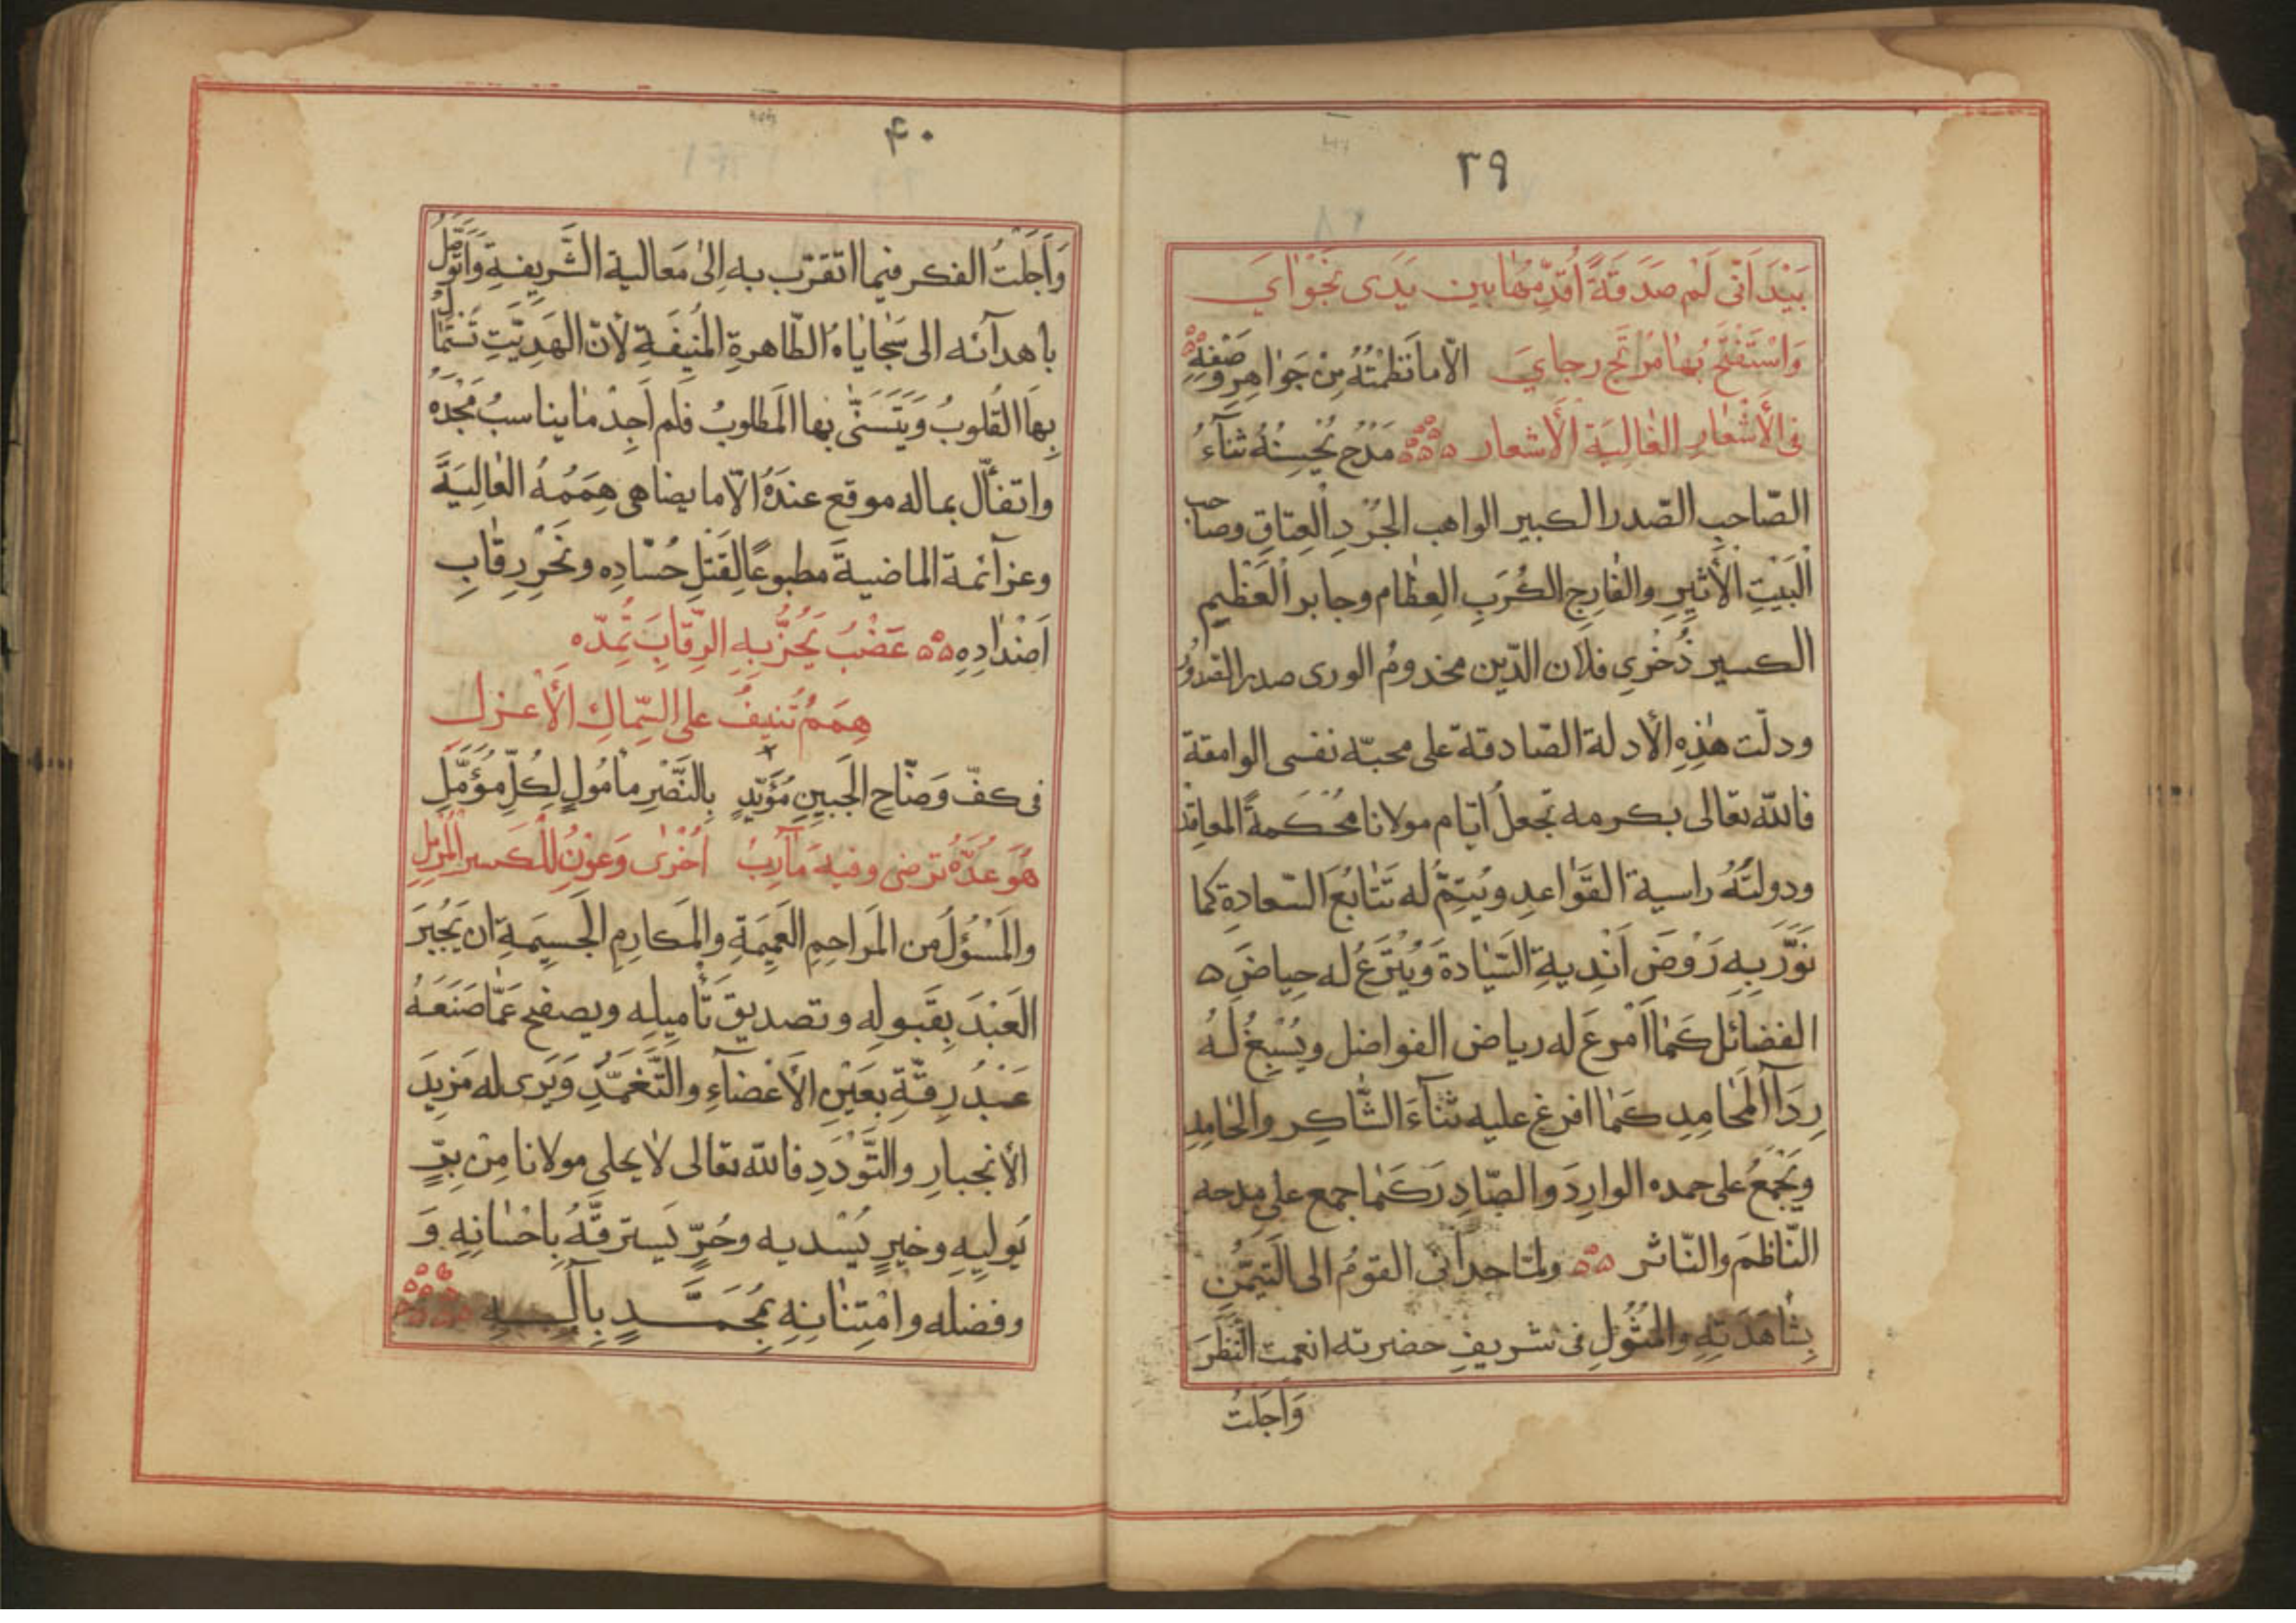 ٣٩
بَيْدَ اَنّى لَم صَدَقَةً اُقَدِّمُها بين يَدَى نَجْوٰاىَ
وَاسْتَفْتِحُ بها مُرْتَجَ رجاىَ الّا ما نَظَمْتُهُ مِنْ جَوٰاهِرِ وَصْفِهِ
فى الأَشْعٰارِ الغٰالِيَةِ الأَشعار مَدْحٌ يُحْسِنُهُ ثنآءُ
الصّاحِبِ الصّدر الكبير الواهب الجُرْدِ العِتاقِ وصاحب
اَلْبَيْتِ الأَثيِرِ والفٰارِجِ الكُرَبِ العِظٰام وجابر العَظْيمِ
الكسير ذُخْرِى فلان الدّين مخدومُ الورى صدر الصّدُورُ
ودلّت هٰذِهِ الأدلة الصّادقة على محبّه نفسى الوامقة
فالله تعالى بكرمه يجعلُ ايّام مولانا مُحْكَمةَ المعاقد
ودولتَهُ راسية القَوٰاعِدِ ويُتِمُّ له تَتٰابُعَ السّعادةِ كما
نَوَّرَ بِهِ رَوْضَ اَنْدِيةِ السّيٰادة وَيُتْرَعُ له حِياضَ
الفضآئل كَمٰا اَمْرعَ له رياض الفواضل ويُسْبِغُ لهُ
رِدَآ المَحٰامِدِ كَمٰا افرغ عليه ثَنآءَ الشّاكِر والحٰامِدِ
ويَجْمَعُ على حمده الوارِدَ والصّادِرَ كَمٰا جمع على مِدحه
النّاظمَ والنّاثر ولمّا حدانى القومُ الى التَيَمُّنِ
بِمُشٰاهَدَتِهِ والمُثُولِ فى شريفِ حضرته انعمت النَّظَرَ
وَاَجَلتُ
۴۰
وَاَجَلْتُ الفكر فيما اتقرّب به اِلىٰ مَعَالية الشَّرِيفةِ وَاَتَوَسَّلُ
باهدآئه الى سَجٰايٰاهُ الطّاهرةِ المُنِيفَةِ لأنّ الهَدِيّتِ تُسْتَمٰالُ
بِها القُلوبُ وَيَتَسَنّٰى بها المَطلوبُ فلم اَجِدْ مٰا يناسبُ مَجْدَهُ
واتفأّل بماله موقع عندَهُ الّا ما يضاهى هِمَمُهُ العٰالِيَةَ
وعزآئمة الماضيةَ مطبوعًا لِقَتلِ حُسّادِه ونَحْرِ رِقٰابِ
اَضْدٰادِهِ عَضْبٌ يَحُزُّ بِهِ الرِّقٰابَ تُمِدّه
هِمَمٌ تُنيفُ على السِّماكِ الأَعْزلِ
فى كفّ وَضّاحِ الجَبينِ مُؤَيّدٍ بِالنَّصْرِ مأمُولٍ لِكلِّ مُؤَمّلِ
هُوَ عُدَّةٌ ترضى وفيه مَآرِبُ اُخْرٰى وَعَوْنٌ للكسير المُرْمِلِ
والمَسْئوُلُ من المَراحِمِ العَمِيمَةِ والمَكارِمِ الجَسيِمَةِ ان يَجْبُرَ
العَبْدَ بِقَبولِهِ وتصديق تَأْميلِه ويصفح عَمّا صَنَعَهُ
عَبْدُ رِقّةٍ بعَيْنِ الأَغْضآءِ والتَّغَمُّدِ وَيَرى له مَزِيدَ
الأنجبارِ والتَّوَدُدِ فالله تعالى لا يخلى مولانا مِنْ بِرٍّ
يُوليِهِ وخيرٍ يُسْدِيه وحُرٍّ يَسترقّهُ بِاحْسٰانِهِ وَ
وفضله وامْتِنٰانِهِ بِمُحَمَّدٍ بِآلِهِ